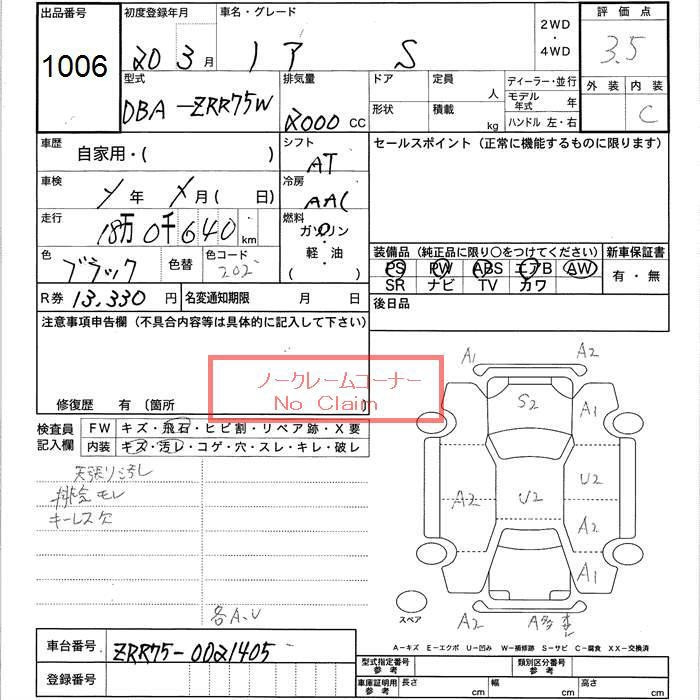 出品番号 初度登録年月 車名・グレード 2WD・4WD 評価点
1006 20 3月 ノア S 3.5
型式 排気量 ドア 定員 人 ディーラー・並行 外装 内装
DBA-ZRR75W 2000 CC 形状 積載 kg モデル年式 年 C
ハンドル 左・右
車歴 自家用・( ) シフト AT セールスポイント (正常に機能するものに限ります)
車検 年 月( 日) 冷房 AAC
走行 18万0千640km 燃料 ガソリン
軽・油
( )
色 ブラック 色替 色コード 202
装備品 (純正品に限り○をつけてください) 新車保証書
PS PW ABS エアB AW 有・無
SR ナビ TV カワ
R券 13,330円 名変通知期限 月 日 後日品
注意事項申告欄 (不具合内容等は具体的に記入して下さい)
ノークレームコーナー
No Claim
修復歴 有 〔箇所
検査員記入欄 FW キズ・飛石・ヒビ割・リペア跡・X要
内装 キズ・汚レ・コゲ・穴・スレ・キレ・破レ
天張り汚し
排気モレ
キーレス欠
各A、U
A1 A2
S2 A1
A2 U2 U2
A2
A1
A2 A多
スペア
A-キズ E-エクボ U-凹み W-補修跡 S-サビ C-腐食 XX-交換済
車台番号 ZRR75-0021405
登録番号
型式指定番号 参考 類別区分番号 参考
車庫証明用 参考 長さ cm 幅 cm 高さ cm